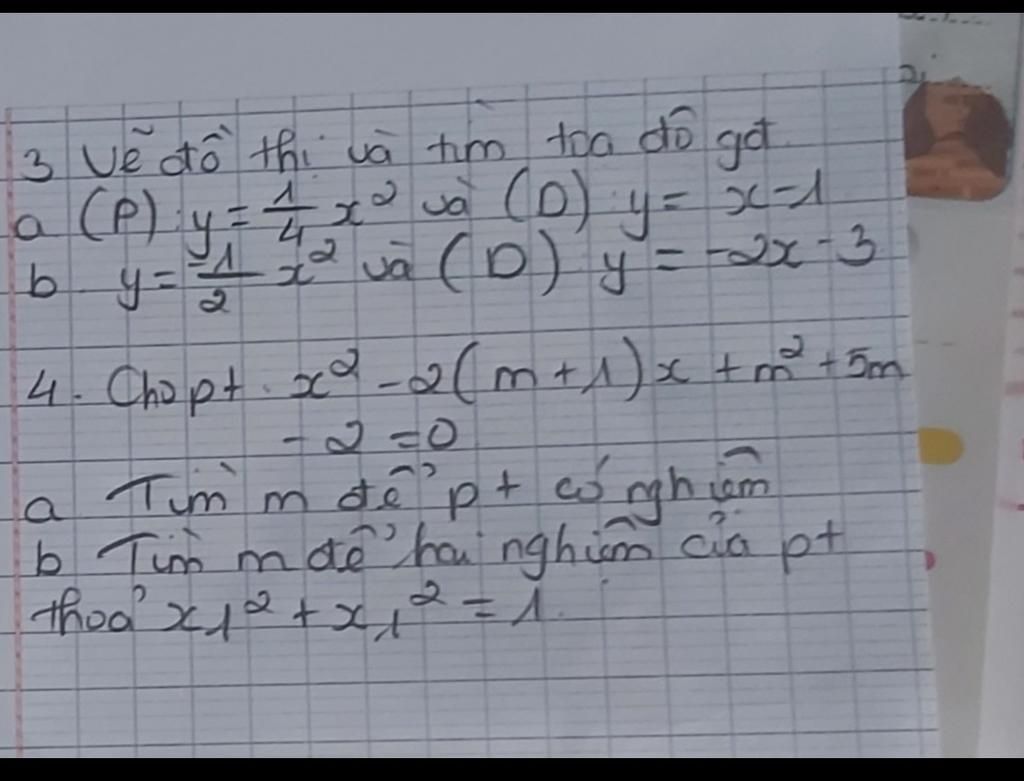 3 Vẽ đồ thị và tìm tọa độ gđ
a (P) : y = 1/4 x² và (D) y = x-1
b y = -1/2 x² và (D) y = -2x - 3
4. Cho pt x² - 2(m+1)x + m² + 5m
- 2 = 0
a Tìm m để pt có nghiệm
b Tìm m để hai nghiệm của pt
thoả x₁² + x₁² = 1.